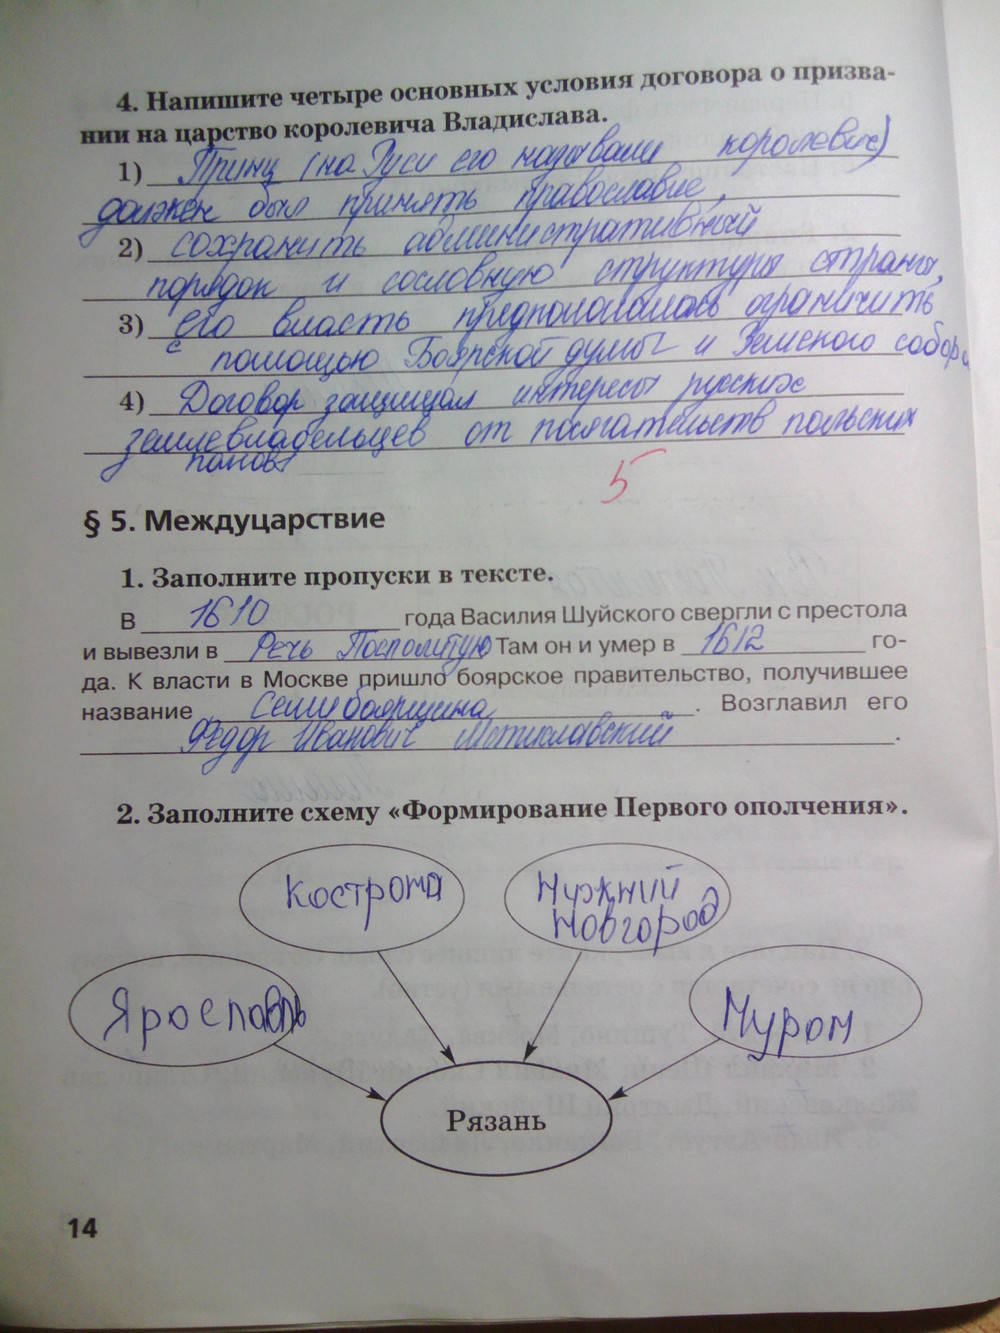 4. Напишите четыре основных условия договора о призва-
нии на царство королевича Владислава.
1) Принц (на Руси его называли королевич)
должен был принять православие,
2) сохранить административный
порядок и сословную структуру страны,
3) его власть предпологалась ограничить
с помощью Боярской думы и Земского собора
4) Договор защищал интересы русских
землевладельцев от посягательств польских
панов.
5
§ 5. Междуцарствие
1. Заполните пропуски в тексте.
В 1610 года Василия Шуйского свергли с престола
и вывезли в Речь Посполитую Там он и умер в 1612 го-
да. К власти в Москве пришло боярское правительство, получившее
название Семибоярщина. Возглавил его
Фёдор Иванович Мстиславский.
2. Заполните схему «Формирование Первого ополчения».
Кострома
Нижний
Новгород
Ярославль
Муром
Рязань
14